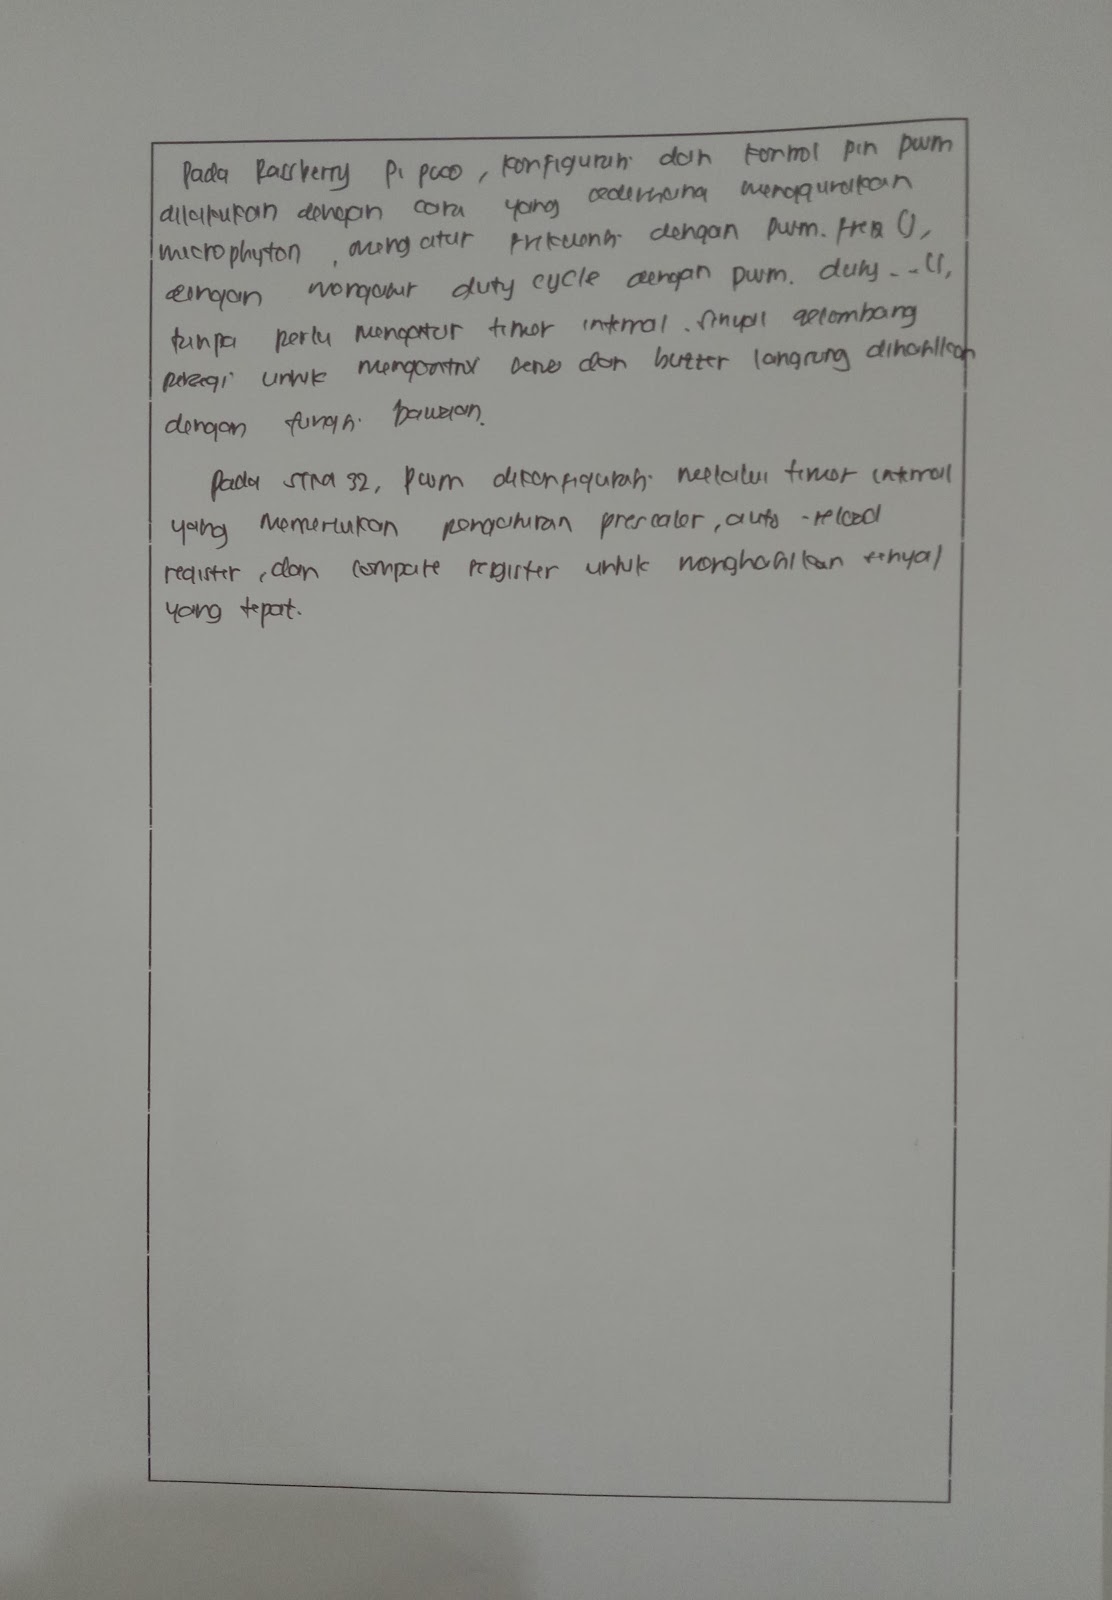 Pada Rassberry Pi pico, konfigurasi dan kontrol pin pwm
dilakukan dengan cara yang sederhana menggunakan
microphyton, mengatur frekuensi dengan pwm.freq (),
dengan mengatur duty cycle dengan pwm. duty - - (),
tanpa perlu mengatur timer internal. Sinyal gelombang
persegi untuk mengontrol servo dan buzzer langsung dihasilkan
dengan fungsi bawaan.
Pada STM 32, pwm dikonfigurasi melalui timer internal
yang memerlukan pengaturan prescaler, auto - reload
register, dan compare register untuk menghasilkan sinyal
yang tepat.